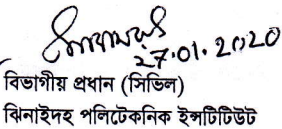 27.01.2020
বিভাগীয় প্রধান (সিভিল)
ঝিনাইদহ পলিটেকনিক ইন্সটিটিউট